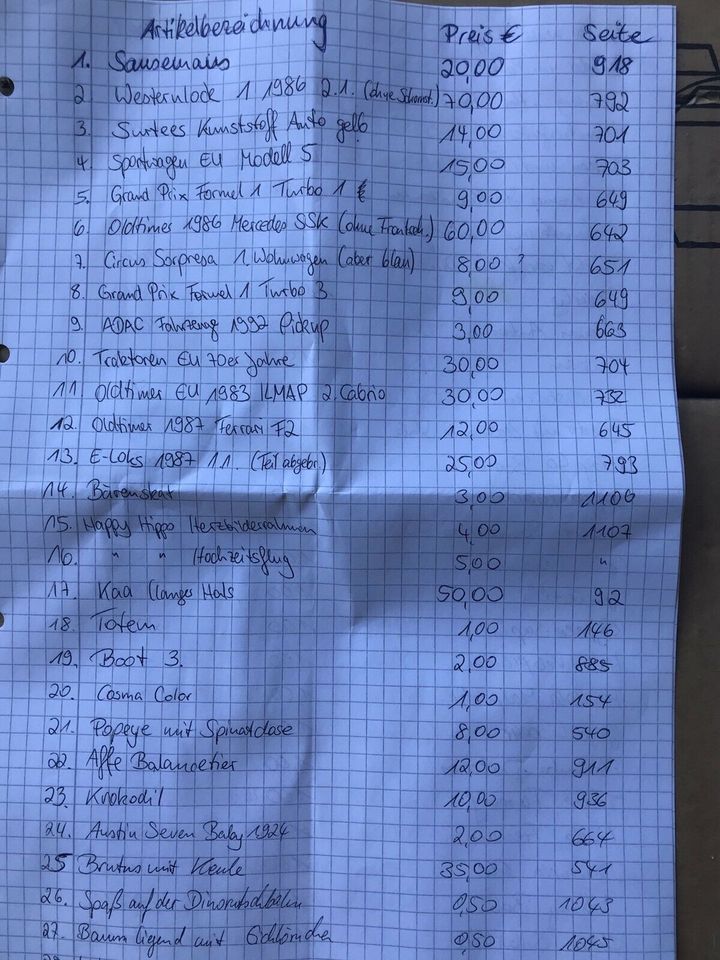 Artikelbezeichnung Preis € Seite
1. Sausemaus 20,00 918
2 Westernlock 1 1986 2.1. (ohne Schornst.) 70,00 792
3. Surtees Kunststoff Auto gelb 14,00 701
4. Sportwagen EU Modell 5 15,00 703
5. Grand Prix Formel 1 Turbo 1 9,00 649
6. Oldtimer 1986 Mercedes SSK (ohne Frontsch.) 60,00 642
7. Circus Sorpresa 1. Wohnwagen (aber blau) 8,00 ? 651
8. Grand Prix Formel 1 Turbo 3 9,00 649
9. ADAC Fahrzeug 1992 Pickup 3,00 663
10. Traktoren EU 70er Jahre 30,00 704
11. Oldtimer EU 1983 ILMAP 2. Cabrio 30,00 732
12. Oldtimer 1987 Ferrari F2 12,00 645
13. E-Loks 1987 1.1. (Teil abgebr.) 25,00 793
14. Bärenskat 3,00 1106
15. Happy Hippo Herzbilderrahmen 4,00 1107
16. " " Hochzeitsflug 5,00 "
17. Kaa (langer Hals 50,00 92
18. Totem 1,00 146
19. Boot 3. 2,00 885
20. Cosma Color 1,00 154
21. Popeye mit Spinatdose 8,00 540
22. Affe Balancetier 12,00 911
23. Krokodil 10,00 936
24. Austin Seven Baby 1924 2,00 664
25 Brutus mit Keule 35,00 541
26. Spaß auf der Dinorutschbahn 0,50 1043
27. Baum liegend mit Eichhörnchen 0,50 1045